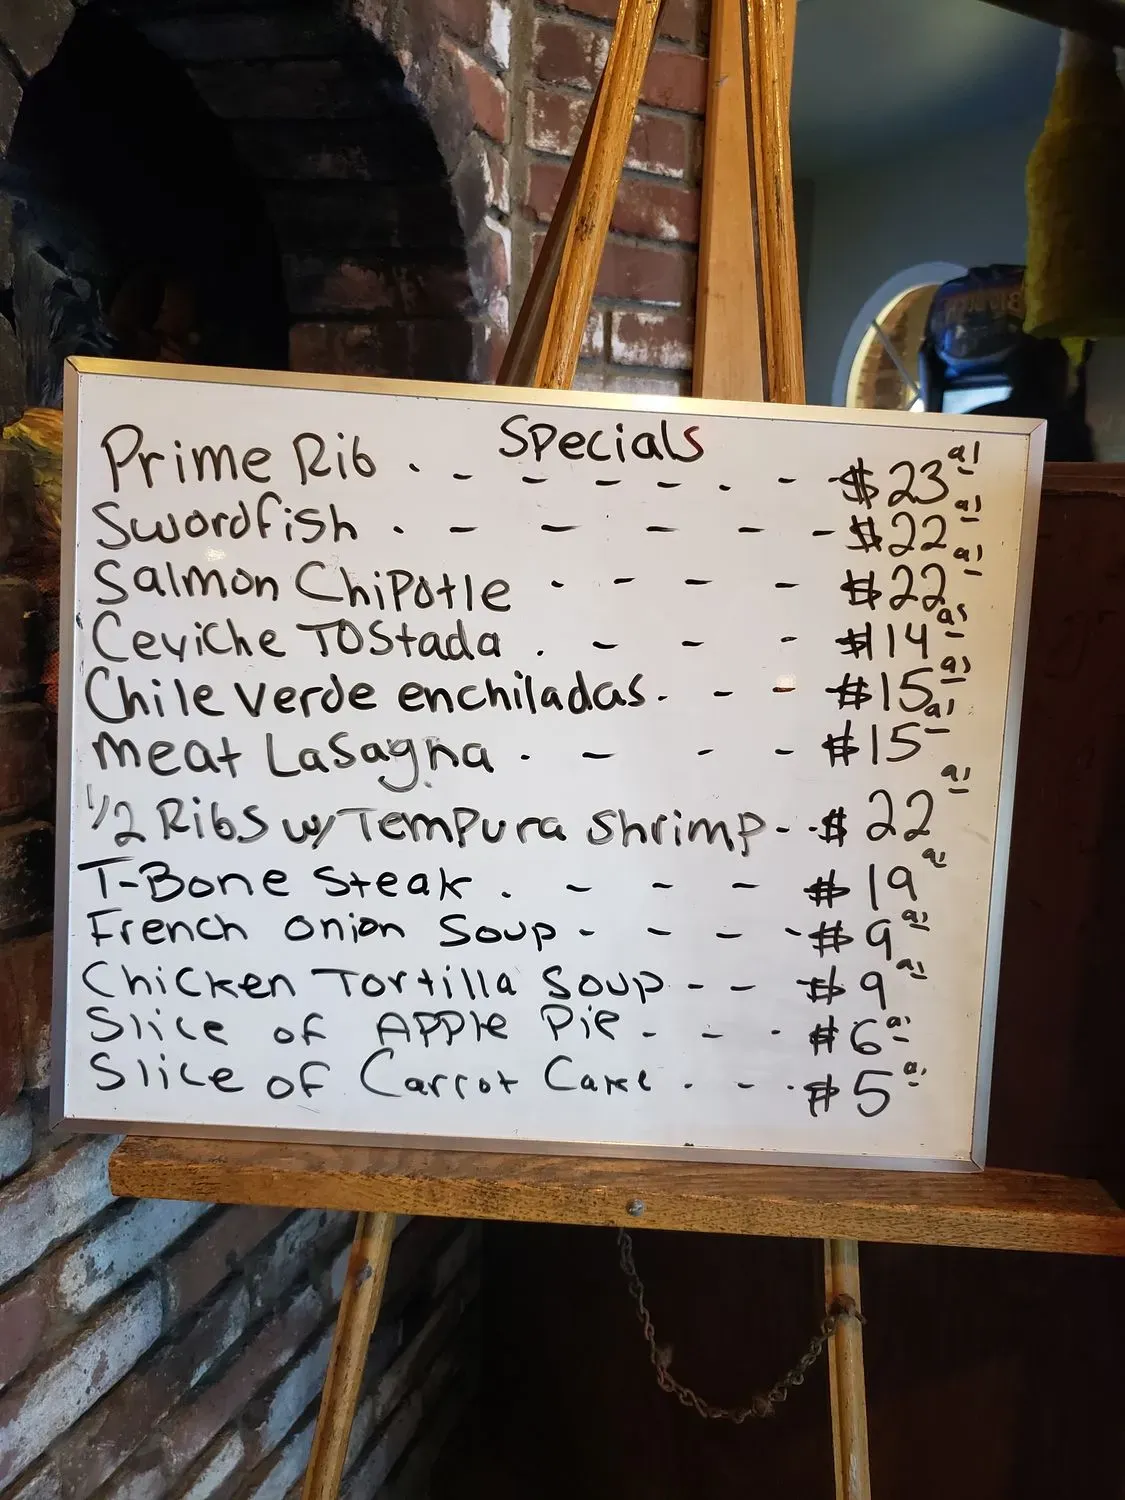 Specials
Prime Rib . - - - - - . - - $23 95
Swordfish . - - - - - $22 95
Salmon Chipotle - - - - $22 95
Ceviche Tostada . - - - $14 95
Chile Verde enchiladas. - - - $15 95
meat Lasagna . - - - $15 95
1/2 Ribs w/ Tempura Shrimp - - $22 95
T-Bone Steak . - - - $19 95
French Onion Soup - - - - $9 95
Chicken Tortilla Soup - - $9 95
Slice of Apple Pie - - - $6 95
Slice of Carrot Cake . - - $5 95